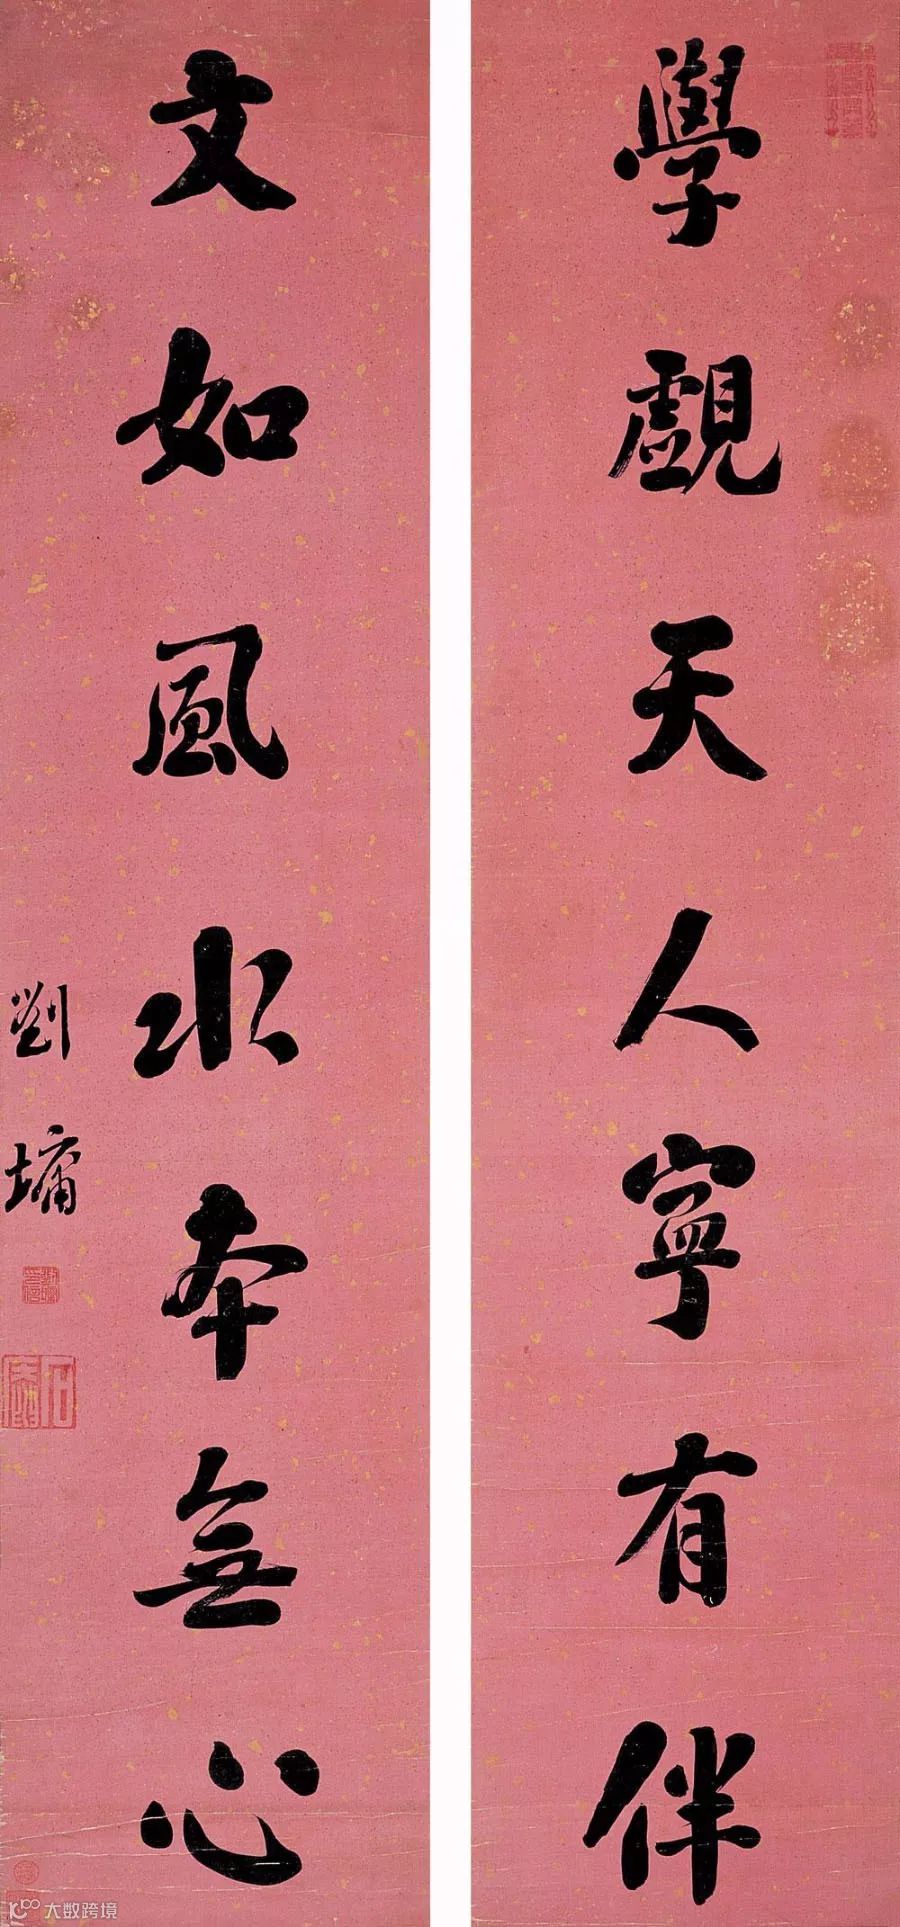 學覷天人寧有伴
文如風水本無心
劉墉
大数跨境